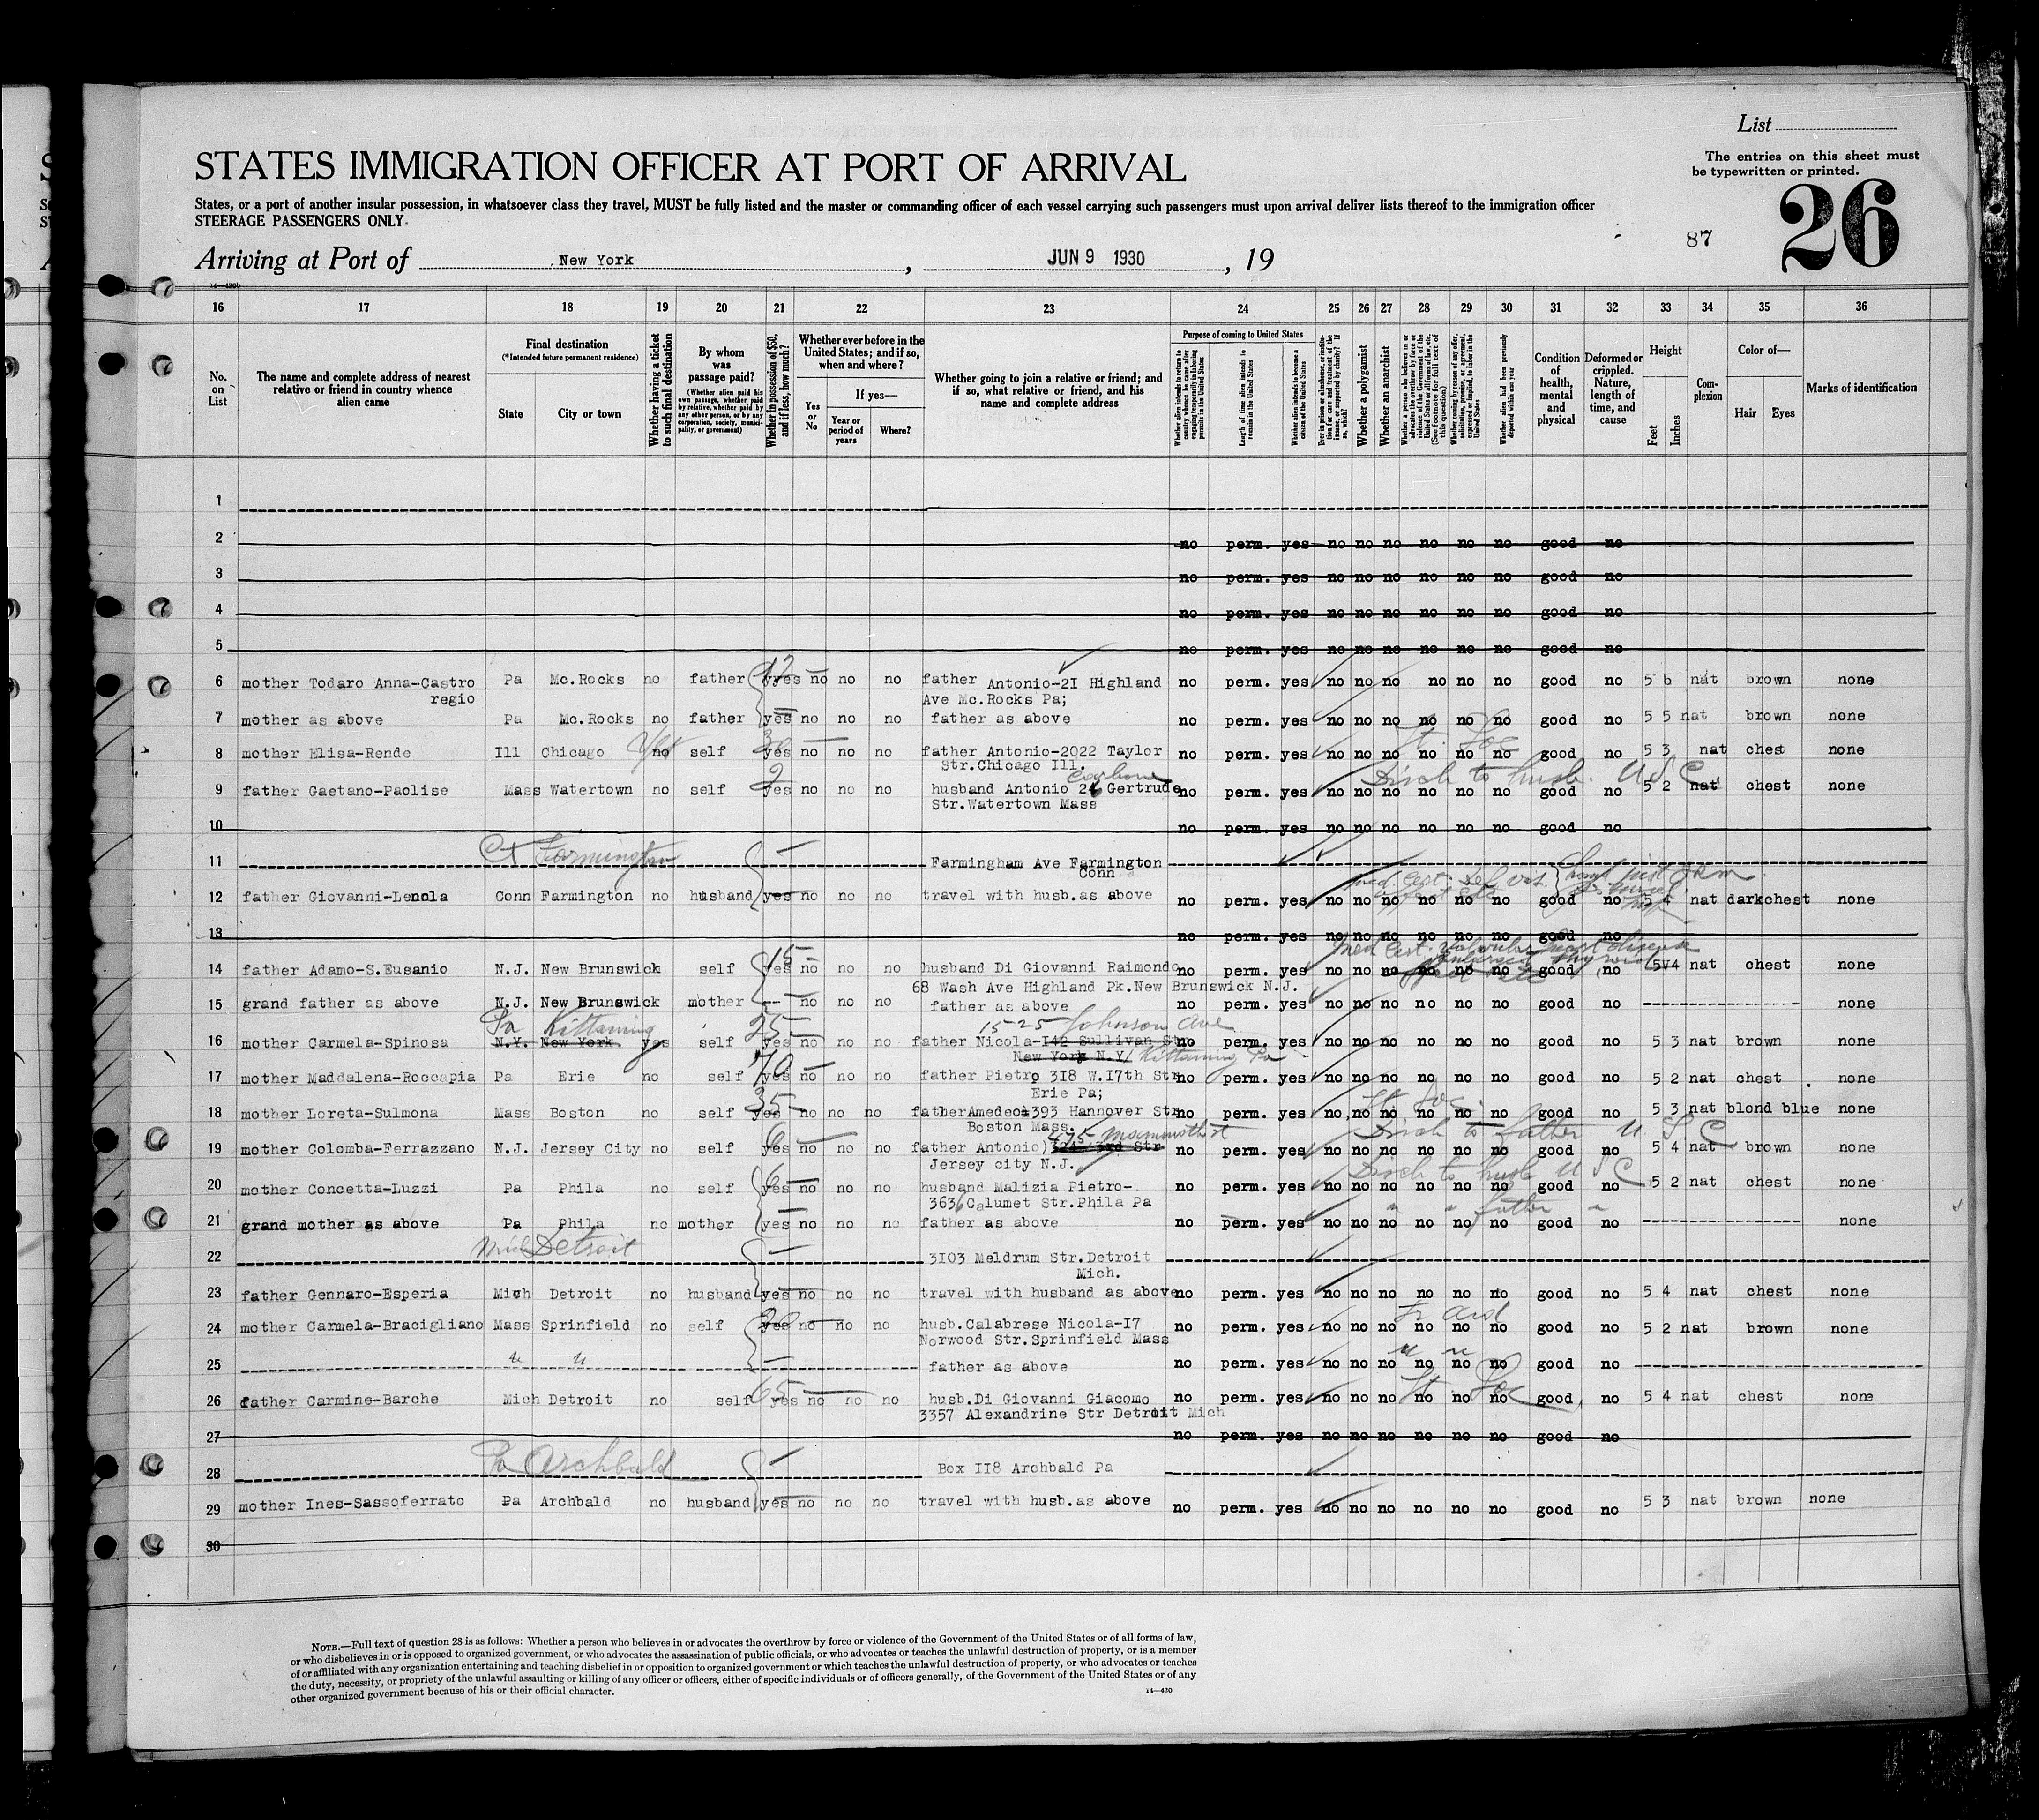 List
The entries on this sheet must
be typewritten or printed.
STATES IMMIGRATION OFFICER AT PORT OF ARRIVAL
26
87
States, or a port of another insular possession, in whatsoever class they travel, MUST be fully listed and the master or commanding officer of each vessel carrying such passengers must upon arrival deliver lists thereof to the immigration officer
STEERAGE PASSENGERS ONLY
Arriving at Port of New York, JUN 9 1930, 19
16 17 18 19 20 21 22 23 24 25 26 27 28 29 30 31 32 33 34 35 36
No. on List
The name and complete address of nearest relative or friend in country whence alien came
Final destination
(*Intended future permanent residence)
State
City or town
Whether having a ticket to such final destination
By whom was passage paid?
(Whether alien paid his own passage, whether paid by relative, whether paid by any other person, or by any corporation, society, municipality, or government)
Whether in possession of $50, and if less, how much?
Whether ever before in the United States; and if so, when and where?
Yes or No
If yes—
Year or period of years
Where?
Whether going to join a relative or friend; and if so, what relative or friend, and his name and complete address
Purpose of coming to United States
Length of time alien intends to remain in the United States
Whether alien intends to become a citizen of the United States
Whether a polygamist
Whether an anarchist
Condition of health, mental and physical
Deformed or crippled. Nature, length of time, and cause
Height
Feet
Inches
Complexion
Color of—
Hair
Eyes
Marks of identification
1
2 no perm. yes no no no no no no good no
3 no perm. yes no no no no no no good no
4 no perm. yes no no no no no no good no
5 no perm. yes no no no no no no good no
6 mother Todaro Anna-Castro Pa Mc.Rocks no father yes no no no father Antonio-21 Highland no perm. yes no no no no no no good no 5 6 nat brown none
regio Ave Mc.Rocks Pa;
7 mother as above Pa Mc.Rocks no father yes no no no father as above no perm. yes no no no no no no good no 5 5 nat brown none
8 mother Elisa-Rende Ill Chicago no self yes no no no father Antonio-2022 Taylor no perm. yes no no no no no no good no 5 3 nat chest none
Str.Chicago Ill.
Carbone Disch to husb. U S C
9 father Gaetano-Paolise Mass Watertown no self yes no no no husband Antonio 26 Gertrude no perm. yes no no no no no no good no 5 2 nat chest none
Str.Watertown Mass
10 no perm. yes no no no no no no good no
11 Ct Farmington Farmingham Ave Farmington
Conn
12 father Giovanni-Lenola Conn Farmington no husband yes no no no travel with husb.as above no perm. yes no no no no no no good no 5 4 nat darkchest none
13 no perm. yes no no no no no no good no
Med Cert. Valvular heart disease
14 father Adamo-S.Eusanio N.J. New Brunswick self 15 yes no no no husband Di Giovanni Raimondo no perm. yes no no no no no no good no 5 4 nat chest none
68 Wash Ave Highland Pk.New Brunswick N.J.
15 grand father as above N.J. New Brunswick mother -- no no no father as above no perm. yes no no no no no no good no none
Pa Kittaning 25 15-25 Johnson Ave
16 mother Carmela-Spinosa N.Y. New York yes self yes no no no father Nicola-142 Sullivan St no perm. yes no no no no no no good no 5 3 nat brown none
New York N.Y. Kittaning Pa
17 mother Maddalena-Roccapia Pa Erie no self 70 yes no no no father Pietro 318 W.17th Str no perm. yes no no no no no no good no 5 2 nat chest none
Erie Pa;
18 mother Loreta-Sulmona Mass Boston no self 35 yes no no no father Amedeo 393 Hannover Str no perm. yes no no no no no no good no 5 3 nat blond blue none
Boston Mass.
475 Mammoth st Disch to father U S C
19 mother Colomba-Ferrazzano N.J. Jersey City no self 6 yes no no no father Antonio) 324 3rd Str no perm. yes no no no no no no good no 5 4 nat brown none
Jersey city N.J.
Disch to husb U S C
20 mother Concetta-Luzzi Pa Phila no self 6 yes no no no husband Malizia Pietro- no perm. yes no no no no no no good no 5 2 nat chest none
3636 Calumet Str.Phila Pa
" " father "
21 grand mother as above Pa Phila no mother yes no no no father as above no perm. yes no no no no no no good no none
22 Mich Detroit 3103 Meldrum Str.Detroit
Mich.
23 father Gennaro-Esperia Mich Detroit no husband yes no no no travel with husband as above no perm. yes no no no no no no good no 5 4 nat chest none
24 mother Carmela-Bracigliano Mass Sprinfield no self yes no no no husb.Calabrese Nicola-17 no perm. yes no no no no no no good no 5 2 nat brown none
Norwood Str.Sprinfield Mass
25 " " father as above no perm. yes no no no no no no good no
26 father Carmine-Barche Mich Detroit no self 65 yes no no no husb.Di Giovanni Giacomo no perm. yes no no no no no no good no 5 4 nat chest none
3357 Alexandrine Str Detroit Mich
27 no perm. yes no no no no no no good no
28 Pa Archbald Box 118 Archbald Pa
29 mother Ines-Sassoferrato Pa Archbald no husband yes no no no travel with husb.as above no perm. yes no no no no no no good no 5 3 nat brown none
30
NOTE.—Full text of question 28 is as follows: Whether a person who believes in or advocates the overthrow by force or violence of the Government of the United States or of all forms of law,
or who disbelieves in or is opposed to organized government, or who advocates the assassination of public officials, or who advocates or teaches the unlawful destruction of property, or is a member
of or affiliated with any organization entertaining and teaching disbelief in or opposition to organized government or which teaches the unlawful destruction of property, or who advocates or teaches
the duty, necessity, or propriety of the unlawful assaulting or killing of any officer or officers, either of specific individuals or of officers generally, of the Government of the United States or of any
other organized government because of his or their official character.
14—430